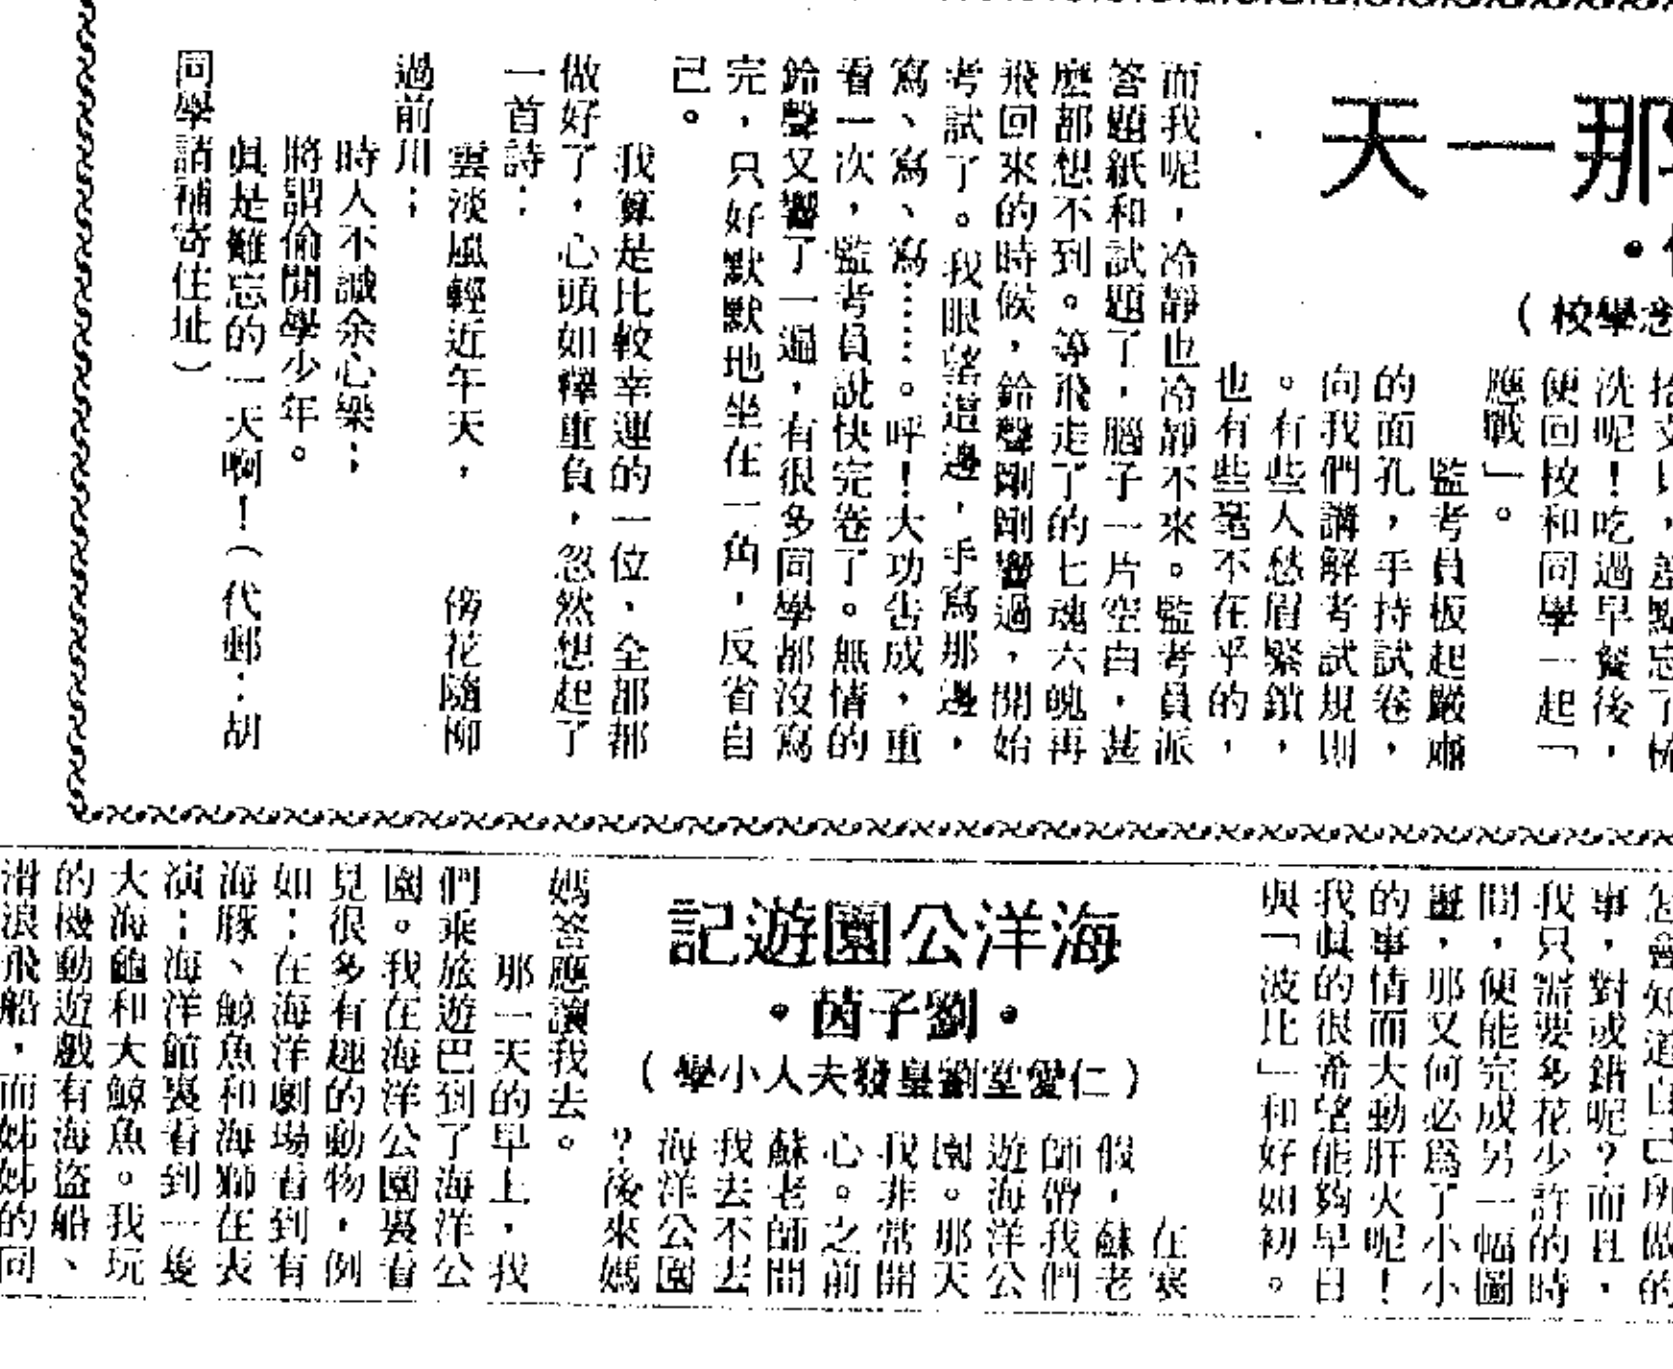 那一天
學校）
洗呢！吃過早餐後，
便回校和同學一起「
應戰」。
監考員板起嚴肅
的面孔，手持試卷，
向我們講解考試規則
。有些人愁眉緊鎖，
也有些毫不在乎的，
而我呢，冷靜也冷靜不來。監考員派
答題紙和試題了，腦子一片空白，甚
麼都想不到。等飛走了的七魂六魄再
飛回來的時候，鈴聲剛剛響過，開始
考試了。我眼望這邊，手寫那邊，
寫、寫、寫……。呼！大功告成，重
看一次，監考員說快完卷了。無情的
鈴聲又響了一遍，有很多同學都沒寫
完，只好默默地坐在一角，反省自
己。
我算是比較幸運的一位，全部都
做好了，心頭如釋重負，忽然想起了
一首詩：
雲淡風輕近午天，　傍花隨柳
過前川；
時人不識余心樂；
將謂偷閒學少年。
眞是難忘的一天啊！（代郵：胡
同學請補寄住址）
怎會知道自己所做的
事，對或錯呢？而且，
我只需要多花少許的時
間，便能完成另一幅圖
畫，那又何必爲了小小
的事情而大動肝火呢！
我眞的很希望能夠早日
與「波比」和好如初。
海洋公園遊記
•劉子茵•
（仁愛堂劉皇發夫人小學）
在寒
假，蘇老
師帶我們
遊海洋公
園。那天
我非常開
心。之前
蘇老師問
我去不去
海洋公園
？後來媽
媽答應讓我去。
那一天的早上，我
們乘旅遊巴到了海洋公
園。我在海洋公園裏看
見很多有趣的動物，例
如：在海洋劇場看到有
海豚、鯨魚和海獅在表
演；海洋館裏看到一隻
大海龜和大鯨魚。我玩
的機動遊戲有海盜船、
滑浪飛船，而姊姊的同